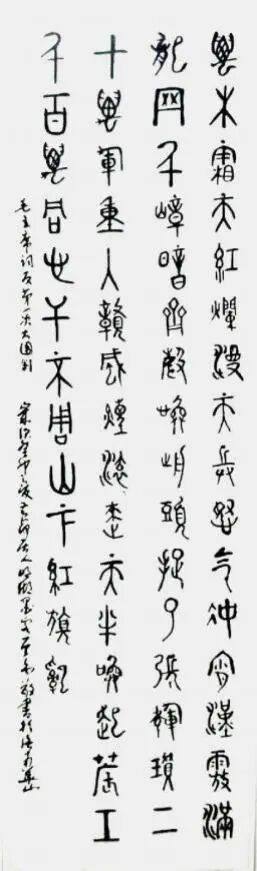 萬木霜天紅爛漫天兵怒气沖霄漢霧滿
龍岡千嶂暗齊聲喚前頭捉了張輝瓚二
十萬軍重入贛風煙滾來天半喚起農工
千百萬同心干不周山下紅旗亂
毛主席詞反第一次大圍剿